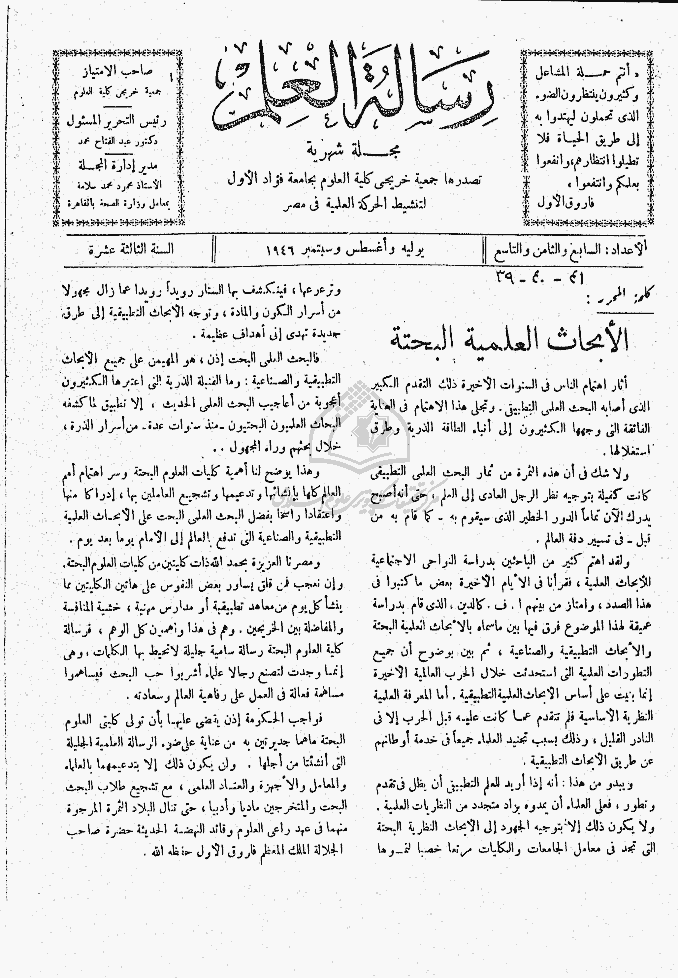 « أنتم حملة المشاعل
وكثيرون ينتظرون الضوء
الذى تحملون ليهتدوا به
إلى طريق الحياة فلا
تطيلوا انتظارهم، وانفعوا
بعلمكم وانتفعوا »
فاروق الأول
رسالة العلم
مجلة شهرية
تصدرها جمعية خريجى كلية العلوم بجامعة فؤاد الاول
لتنشيط الحركة العلمية فى مصر
صاحب الامتياز
جمعية خريجى كلية العلوم
رئيس التحرير المسئول
دكتور عبد الفتاح محمد
مدير إدارة المجلة
الأستاذ محمود محمد سلامة
بمعامل وزارة الصحة بالقاهرة
الأعداد: السابع والثامن والتاسع
يوليه وأغسطس وسبتمبر ١٩٤٦
السنة الثالثة عشرة
٣٩ - ٤٠ - ٤١
كلمة المحرر :
الأبحاث العلمية البحتة
أثار اهتمام الناس فى السنوات الاخيرة ذلك التقدم الكبير
الذى أصابه البحث العلمى التطبيقى . وتجلى هذا الاهتمام فى العناية
الفائقة التى وجهها الكثيرون إلى أنباء الطاقة الذرية وطرق
استغلالها .
ولا شك فى أن هذه الثمرة من ثمار البحث العلمى التطبيقى
كانت كفيلة بتوجيه نظر الرجل العادى إلى العلم ، حتى أنه أصبح
يدرك الآن تماماً الدور الخطير الذى سيقوم به - كما قام به من
قبل - فى تسيير دفة العالم .
ولقد اهتم كثير من الباحثين بدراسة النواحى الاجتماعية
للأبحاث العلمية ، فقرأنا فى الأيام الاخيرة بعض ما كتبوا فى
هذا الصدد ، وامتاز من بينهم ا . ف . كالدين ، الذى قام بدراسة
عميقة لهذا الموضوع فرق فيها بين ماسماه بالأبحاث العلمية البحتة
والأبحاث التطبيقية والصناعية ، ثم بين بوضوح أن جميع
التطورات العلمية التى استحدثت خلال الحرب العالمية الاخيرة
إنما بنيت على أساس الأبحاث العلمية التطبيقية . أما المعرفة العلمية
النظرية الأساسية فلم تتقدم عما كانت عليه قبل الحرب إلا فى
النادر القليل ، وذلك بسبب تجنيد العلماء جميعاً فى خدمة أوطانهم
عن طريق الأبحاث التطبيقية .
ويبدو من هذا : أنه إذا أريد للعلم التطبيقى أن يظل فى تقدم
وتطور ، فعلى العلماء أن يمدوه بزاد متجدد من النظريات العلمية .
ولا يكون ذلك إلا بتوجيه الجهود إلى الأبحاث النظرية البحتة
التى تجد فى معامل الجامعات والكليات مرتعا خصبا لنموها
وترعرعها ، فينكشف بها الستار رويداً رويدا عما زال مجهولا
من أسرار الكون والمادة ، وتوجه الأبحاث التطبيقية إلى طرق
جديدة تهدى إلى أهداف عظيمة .
فالبحث العلمى البحت إذن ، هو المهيمن على جميع الأبحاث
التطبيقية والصناعية : وما القنبلة الذرية التى اعتبرها الكثيرون
أعجوبة من أعاجيب البحث العلمى الحديث ، إلا تطبيق لما كشفه
البحاث العلميون البحتيون - منذ سنوات عدة - من أسرار الذرة ،
خلال بحثهم وراء المجهول . .
وهذا يوضح لنا أهمية كليات العلوم البحتة وسر اهتمام أمم
العالم كلها بإنشائها وتدعيمها وتشجيع العاملين بها ، إدراكا منها
واعتقادا راسخا بفضل البحث العلمى البحت على الأبحاث العلمية
التطبيقية والصناعية التى تدفع بالعالم إلى الأمام يوما بعد يوم .
ومصرنا العزيزة بحمد الله ذات كليتين من كليات العلوم البحتة .
وإن نعجب فمن قلق يساور بعض النفوس على هاتين الكليتين مما
ينشأ كل يوم من معاهد تطبيقية أو مدارس مهنية ، خشية المنافسة
والمفاضلة بين الخريجين . وهم فى هذا واهمون كل الوهم ، فرسالة
كلية العلوم البحتة رسالة سامية جليلة لا تحيط بها الكلمات ، وهى
إنما وجدت لتصنع رجالا علماء أشربوا حب البحث فيساهموا
مساهمة فعالة فى العمل على رفاهية العالم وسعادته .
فواجب الحكومة إذن يقضى عليها بأن تولى كليتى العلوم
البحتة ماهما جديرتين به من عناية على ضوء الرسالة العلمية الجليلة
التى أنشئتا من أجلها . ولن يكون ذلك إلا بتدعيمهما بالعلماء
والمعامل والأجهزة والعتاد العلمى ، مع تشجيع طلاب البحث
البحت والمتخرجين ماديا وأدبيا ، حتى تنال البلاد الثمرة المرجوة
منهما فى عهد راعى العلوم وقائد النهضة الحديثة حضرة صاحب
الجلالة الملك المعظم فاروق الأول حفظه الله .